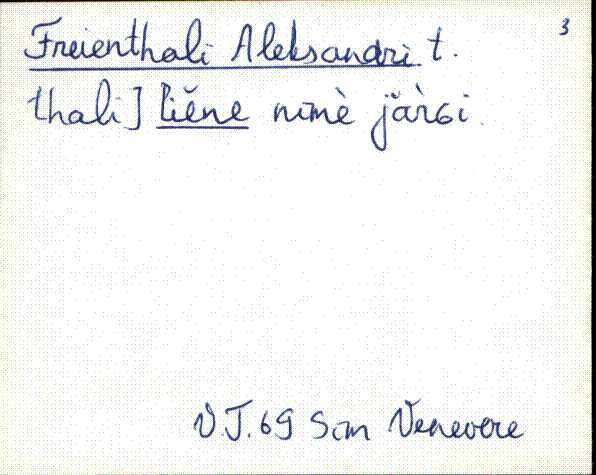 3
Freienthali Aleksandri t.
thali] liĕne nimè jä̀rɢi.
V.J. 69 Sim Venevere